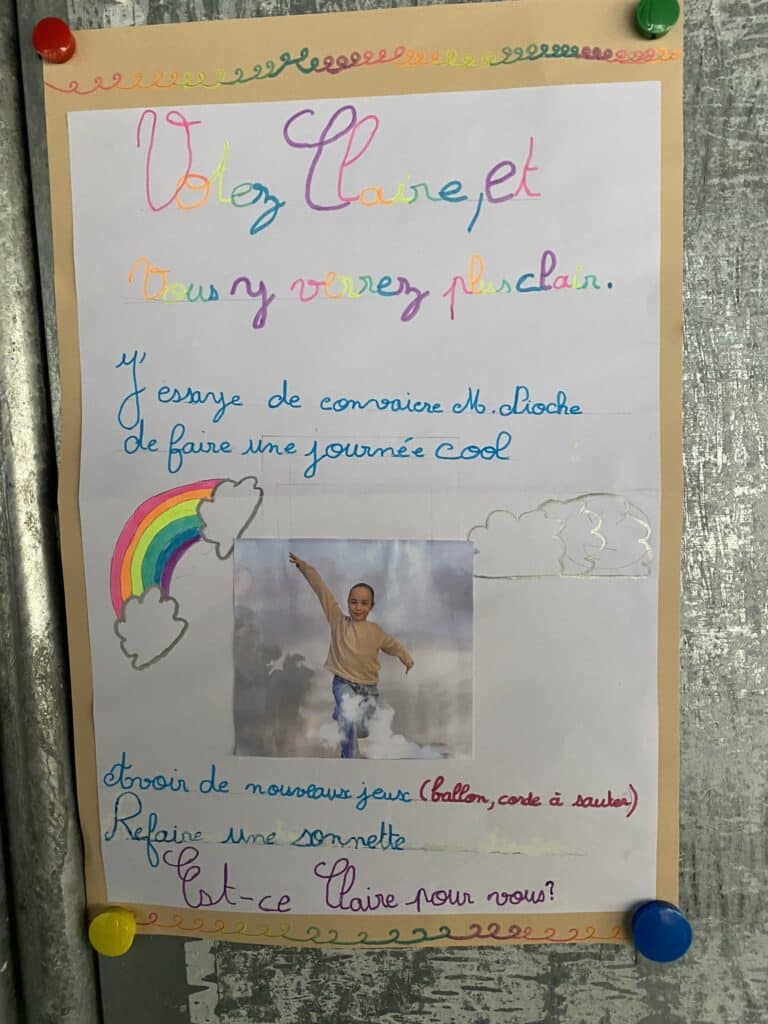 Votez Claire, et
Vous y verrez plus clair.
J'essaye de convaicre M. Dioche
de faire une journée cool
Avoir de nouveaux jeux (ballon, corde à sauter)
Refaire une sonnette
Est-ce Claire pour vous?